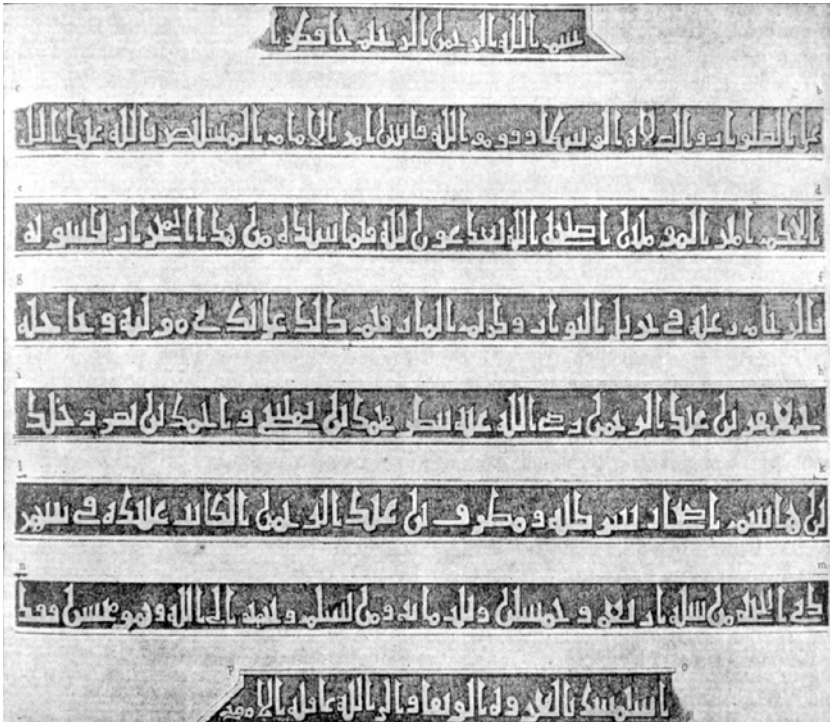 بسم الله الرحمن الرحيم حافظوا
على الصلوات والصلاة الوسطى وقوموا لله قانتين امر الامام المستنصر بالله عبد الله
الحكم امير المومنين اصلحه الله بعد عون الله فيما شيده من هذا المحراب بكسوته
بالرخام رغبة في جزيل الثواب وكريم الماب فتم ذلك على يدي مولاه وحاجبه
جعفر بن عبد الرحمن رضي الله عنه بنظر محمد بن تمليخ واحمد بن نصر وخلد
بن هاشم اصحاب شرطته ومطرف بن عبد الرحمن الكاتب عبيده في شهر
ذي الحجة من سنة اربع وخمسين وثلث مائة ومن يسلم وجهه الى الله وهو محسن فقد
استمسك بالعروة الوثقى والى الله عاقبة الامور